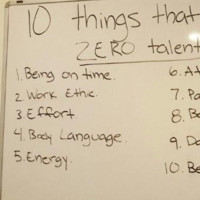 10 things that
ZERO talent
1. Being on time.
2. Work Ethic.
3 Effort
4. Body Language.
5. Energy.
6. At
7. Pa
8. Be
9. Do
10. Be